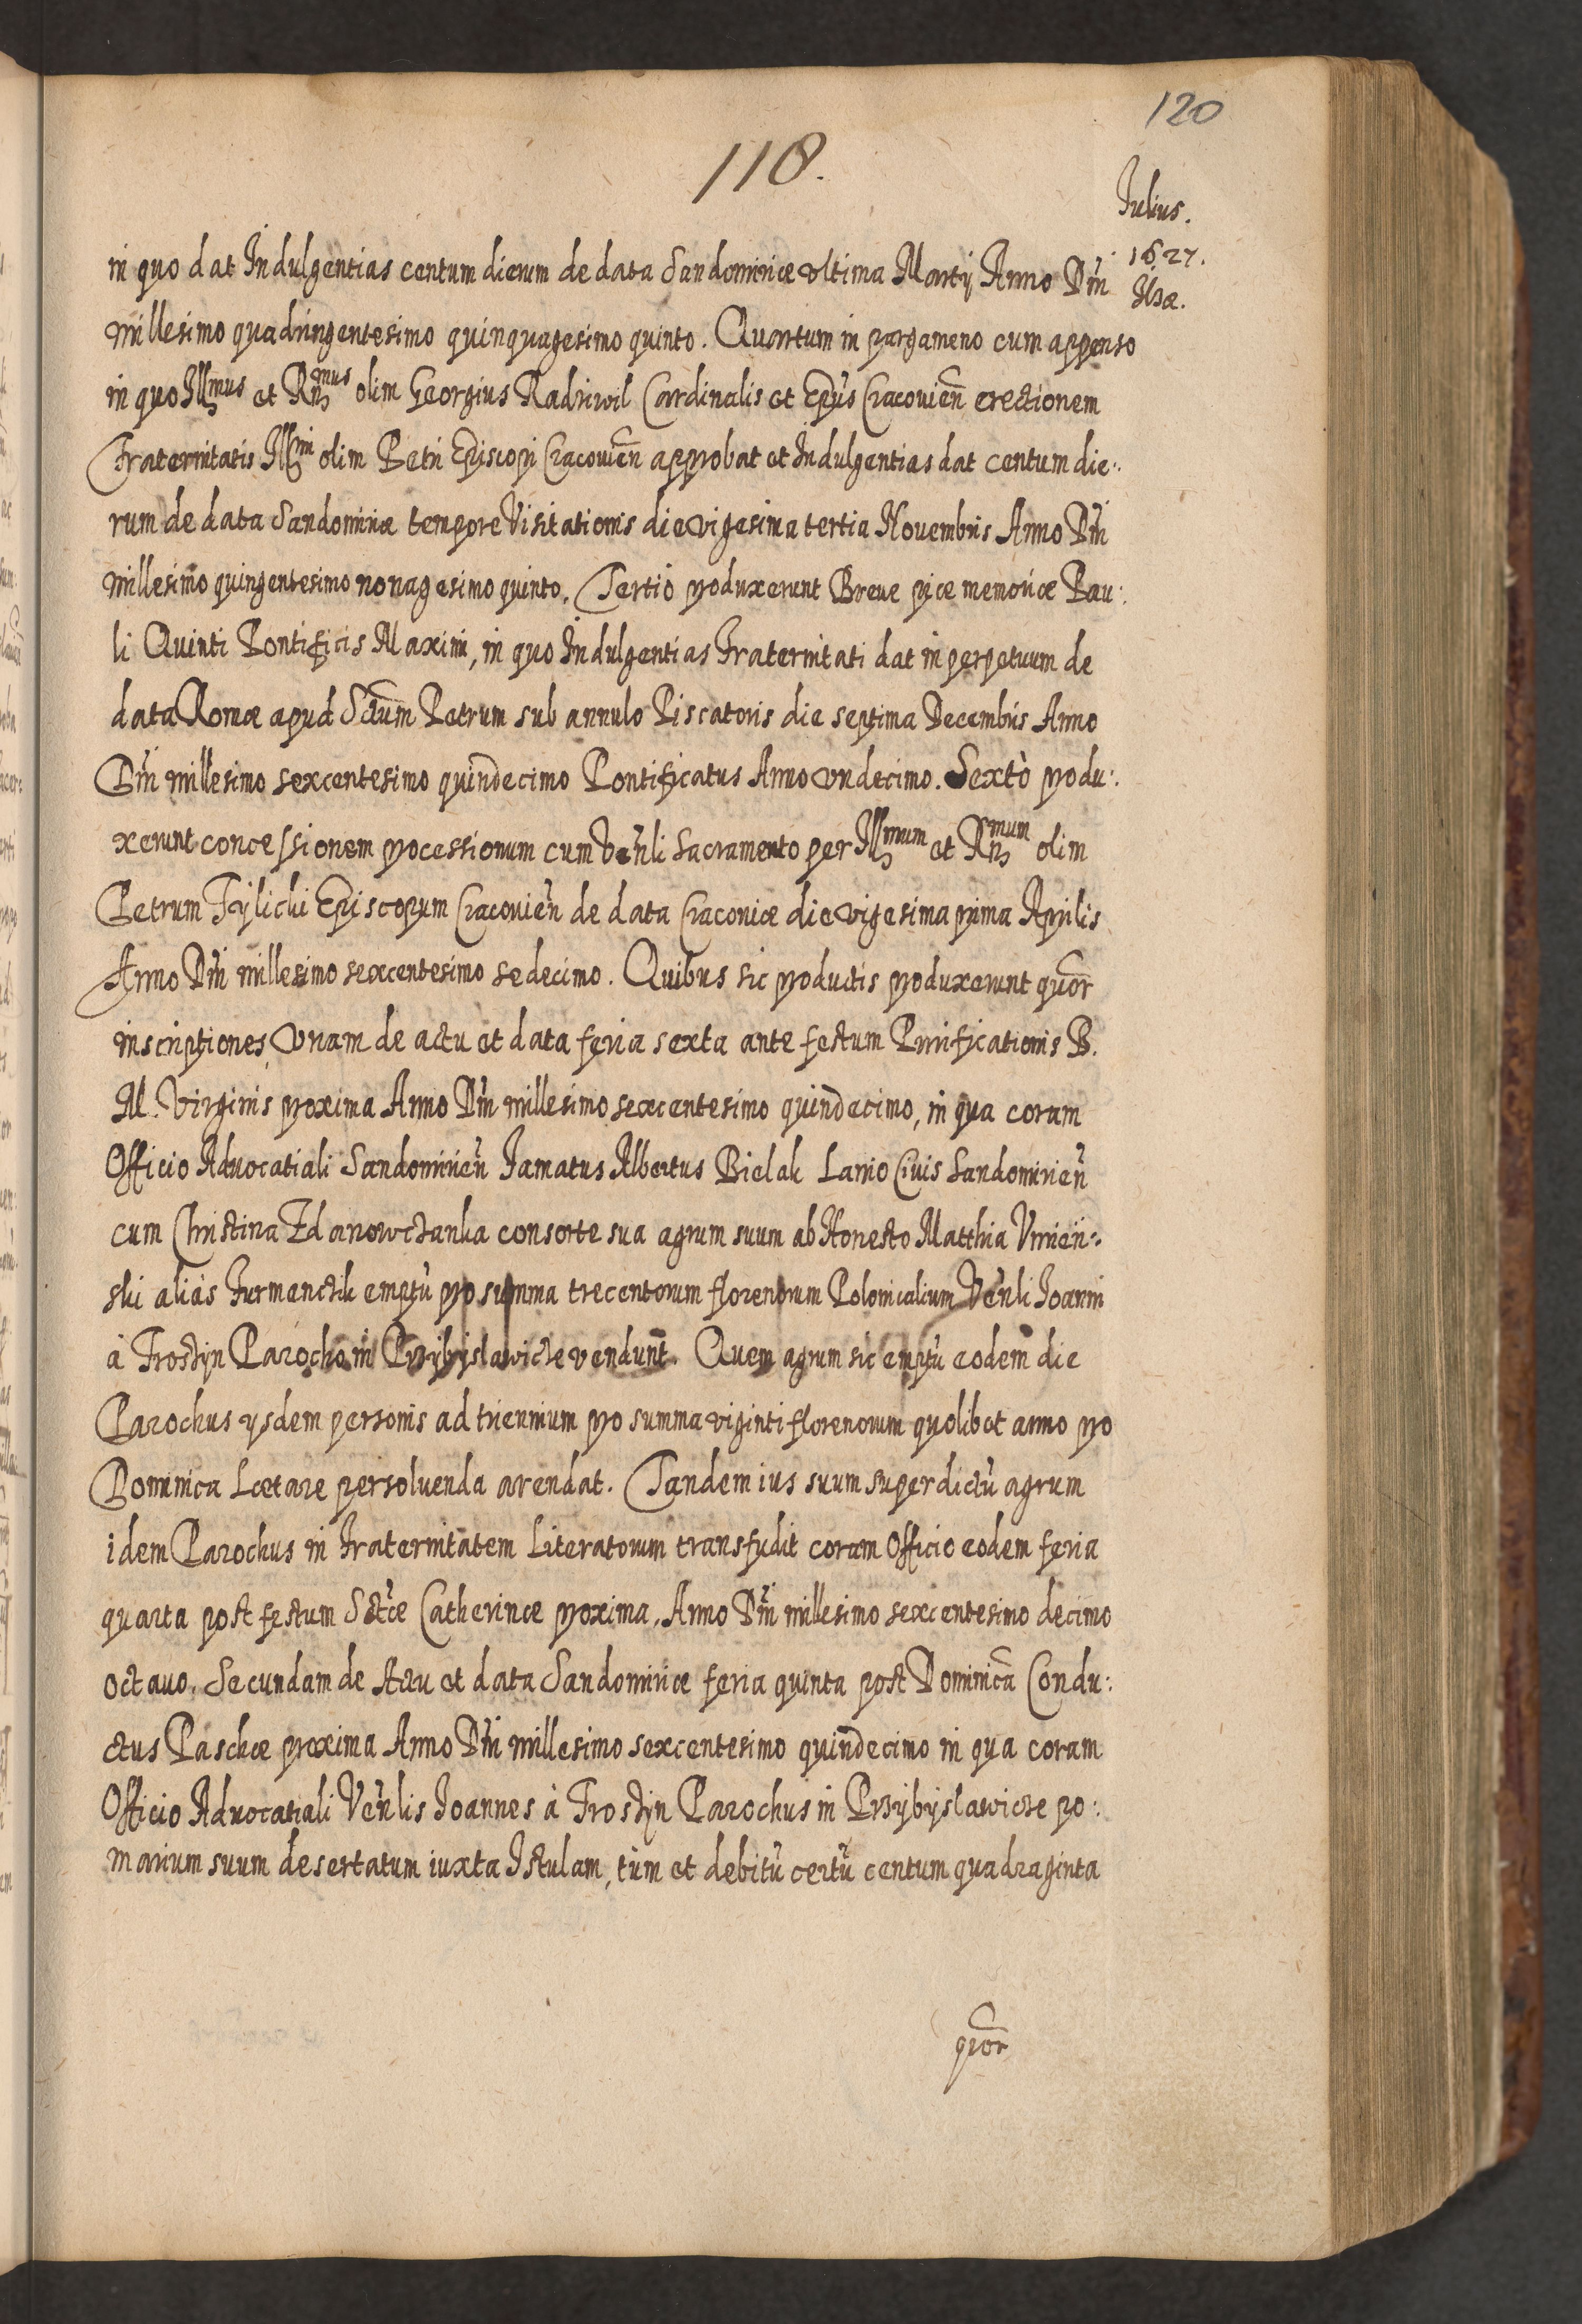 120
118.
Julius.
1627.
in quo dat Indulgentias centum dierum de data Sandomiriæ ultima Martij Anno Dñi
millesimo quadringentesimo quinquagesimo quinto. Quartum in pargameno cum appenso
in quo Illmus et Rñmus olim Georgius Radziwil Cardinalis et Epũs Cracovieñ erectionem
Fraternitatis Illmi olim Petri Episcopi Cracovieñ approbat et Indulgentias dat centum die:
rum de data Sandomiriæ tempore Visitationis die vigesima tertia Novembris Anno Dñi
millesimo quingentesimo nonagesimo quinto. Tertiò produxerunt Breve piæ memoriæ Pau:
li Quinti Pontificis Maximi, in quo Indulgentias Fraternitati dat in perpetuum de
data Romæ apud Sctum Petrum sub annulo Piscatoris die septima Decembris Anno
Dñi millesimo sexcentesimo quindecimo Pontificatus Anno undecimo. Sextò produ:
xerunt concessionem processionum cum Veñli Sacramento per Illmum et Rñmum olim
Petrum Tylicki Episcopum Cracovieñ de data Cracoviæ die vigesima prima Aprilis
Anno Dñi millesimo sexcentesimo sedecimo. Quibus sic productis produxerunt quõr
inscriptiones Unam de actu et data feria sexta ante festum Purificationis B.
M. Virginis proxima Anno Dñi millesimo sexcentesimo quindecimo, in qua coram
Officio Advocatiali Sandomirieñ Famatus Albertus Bielak Lanio Civis Sandomirieñ
cum Christina Zdanowczanka consorte sua agrum suum ab Honesto Matthia
ski aliàs Furmanczik emptũ pro summa trecentorum florenorum Polonicalium Veñli Joanni
à Trosczyn Parocho in Przybyslawicze vendunt. Quem agrum sic emptũ eodem die
Parochus ijsdem personis ad triennium pro summa viginti florenorum quolibet anno pro
Dominica Lætare persolvenda arendat. Tandem ius suum super dictũ agrum
idem Parochus in Fraternitatem Literatorum transfudit coram Officio eodem feria
quarta post festum Sctæ Catherinæ proxima, Anno Dñi millesimo sexcentesimo decimo
octavo. Secundam de Actu et data Sandomiriæ feria quinta post Dominicã Condu:
ctus Paschæ proxima Anno Dñi millesimo sexcentesimo quindecimo in qua coram
Officio Advocatiali Veñlis Joannes à Trosczyn Parochus in Przybyslawicze po:
marium suum desertatum iuxta Istulam, tùm et debitũ certũ centum quadraginta
quõr